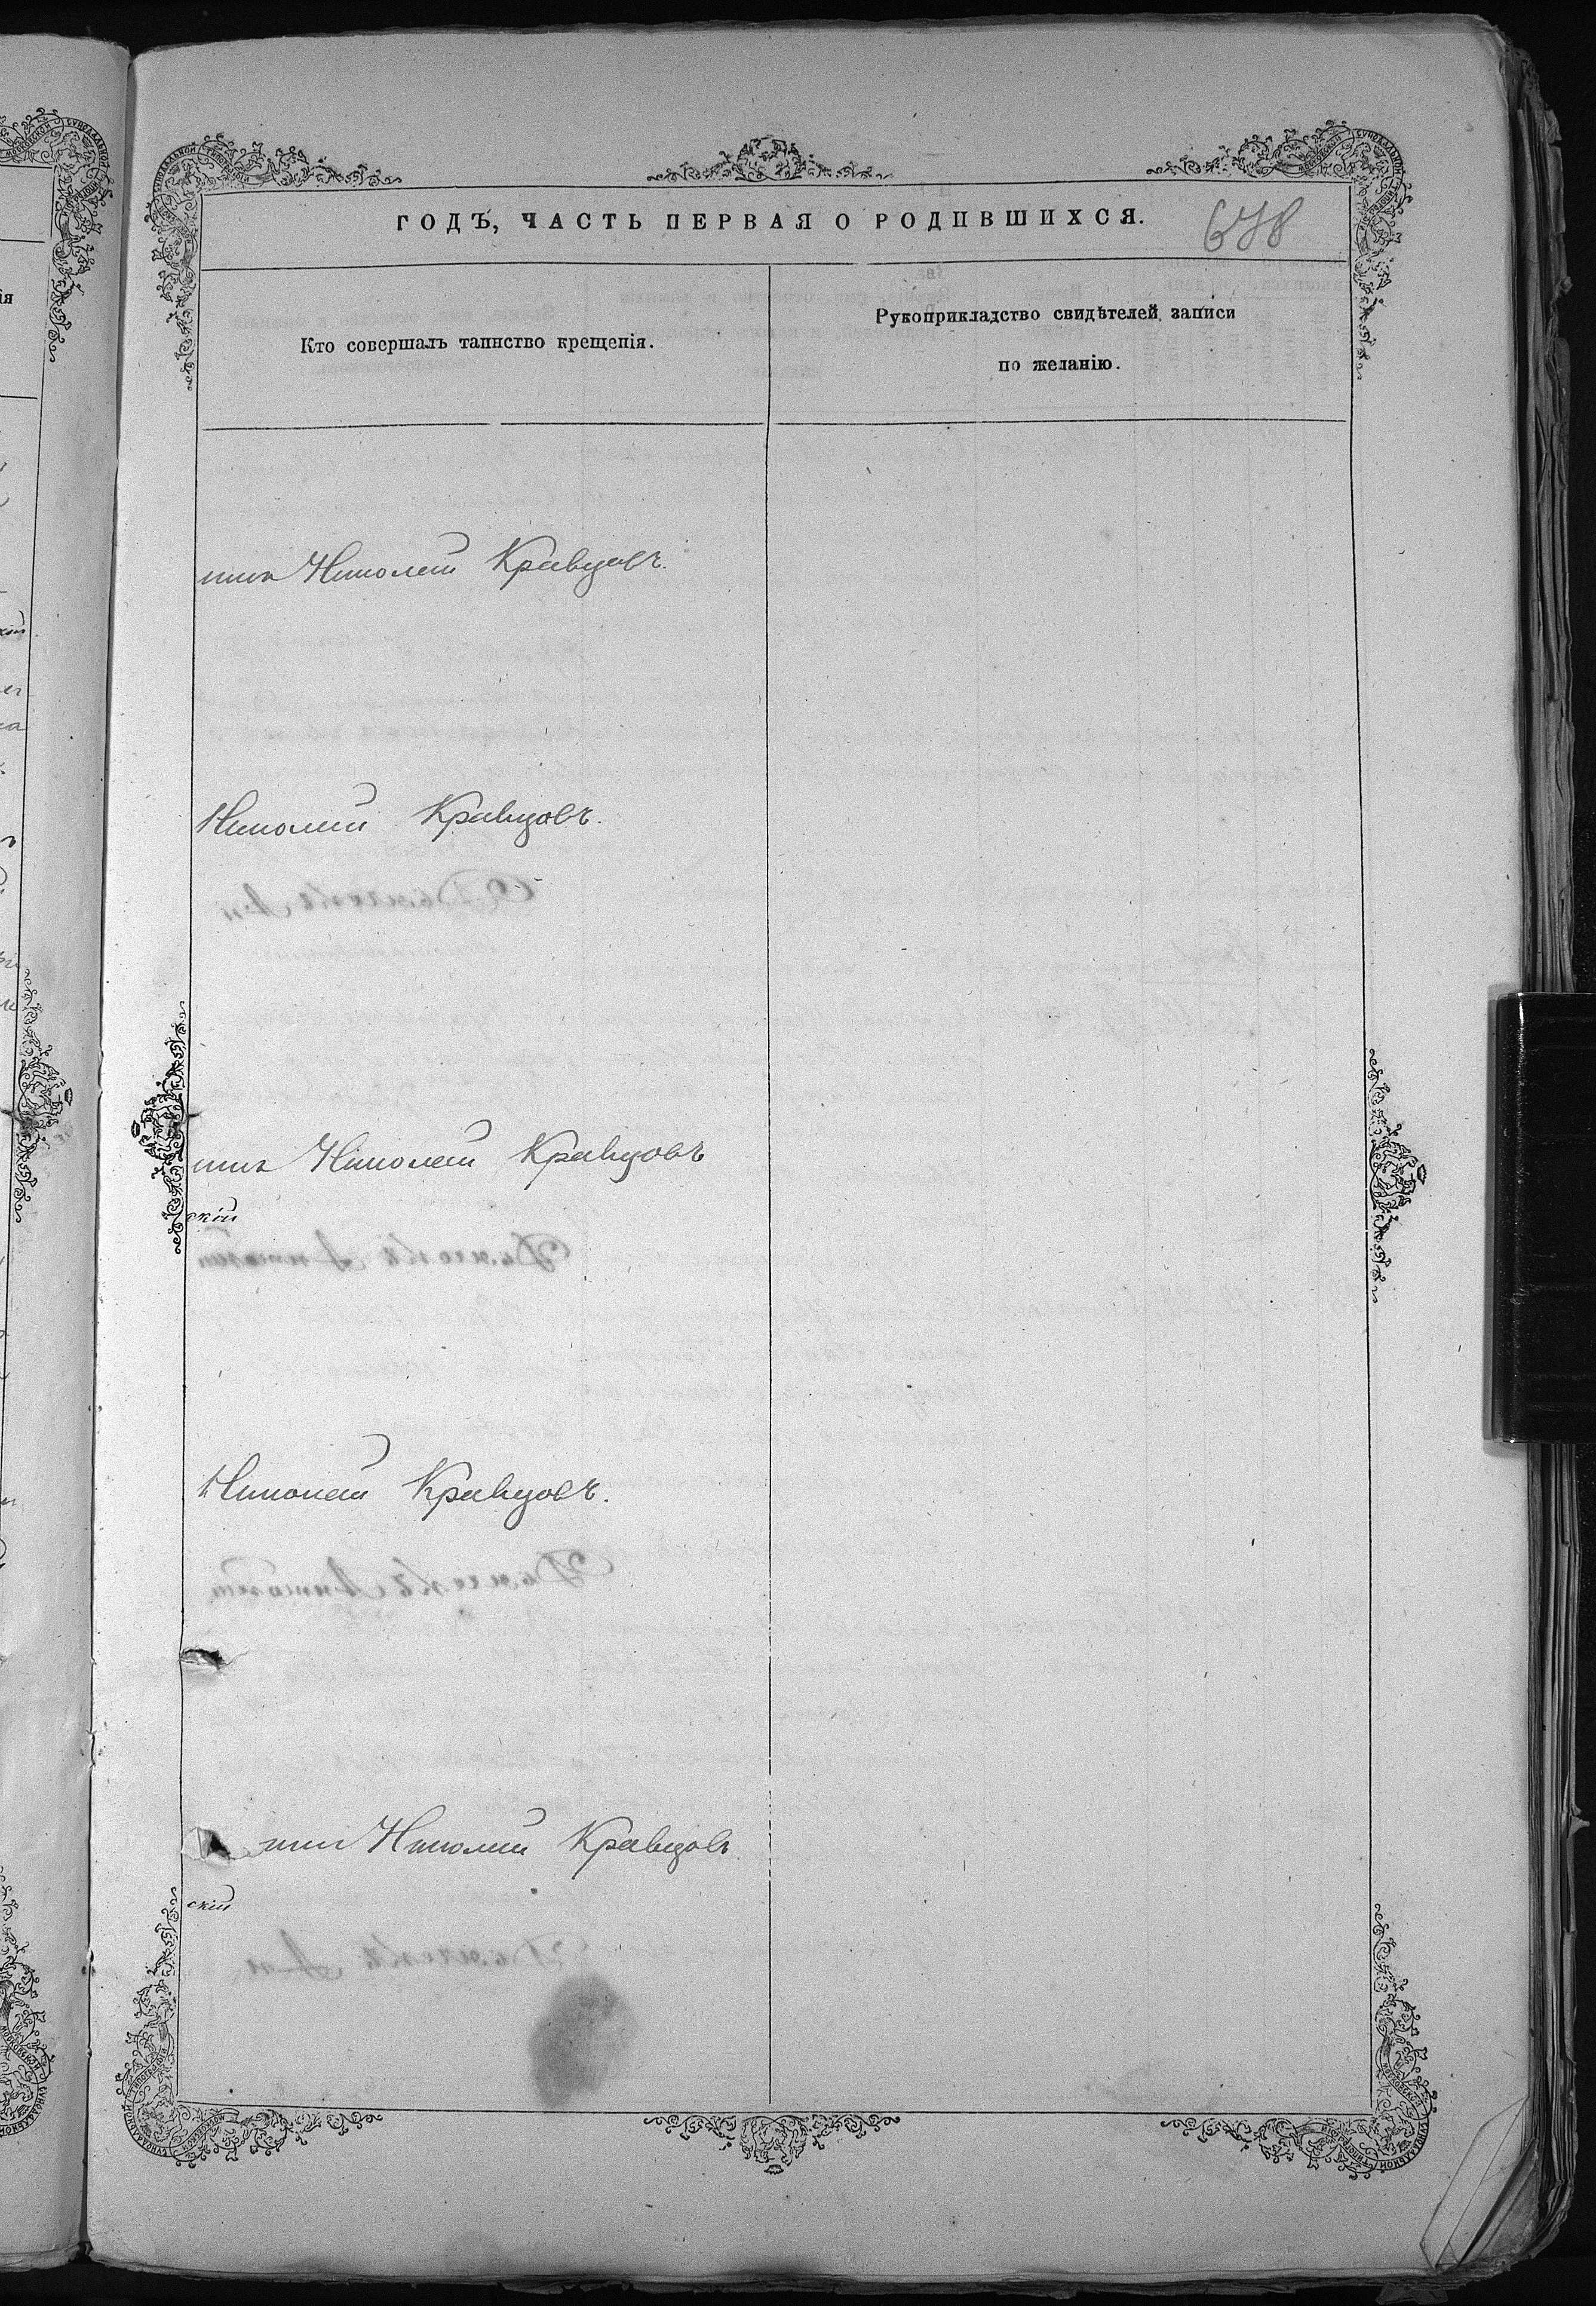 ГОДЪ, ЧАСТЬ ПЕРВАЯ О РОДИВШИХСЯ.
678
Кто совершалъ таинство крещенія.
Рукоприкладство свидѣтелей записи
по желанію.
Николай Кравцовъ.
Николай Кравцовъ.
Николай Кравцовъ
скій
Николай Кравцовъ.
Николай Кравцовъ
скій